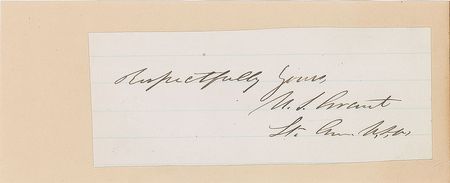 Respectfully Yours,
U. S. Grant
Lt. Gen. U.S.A.